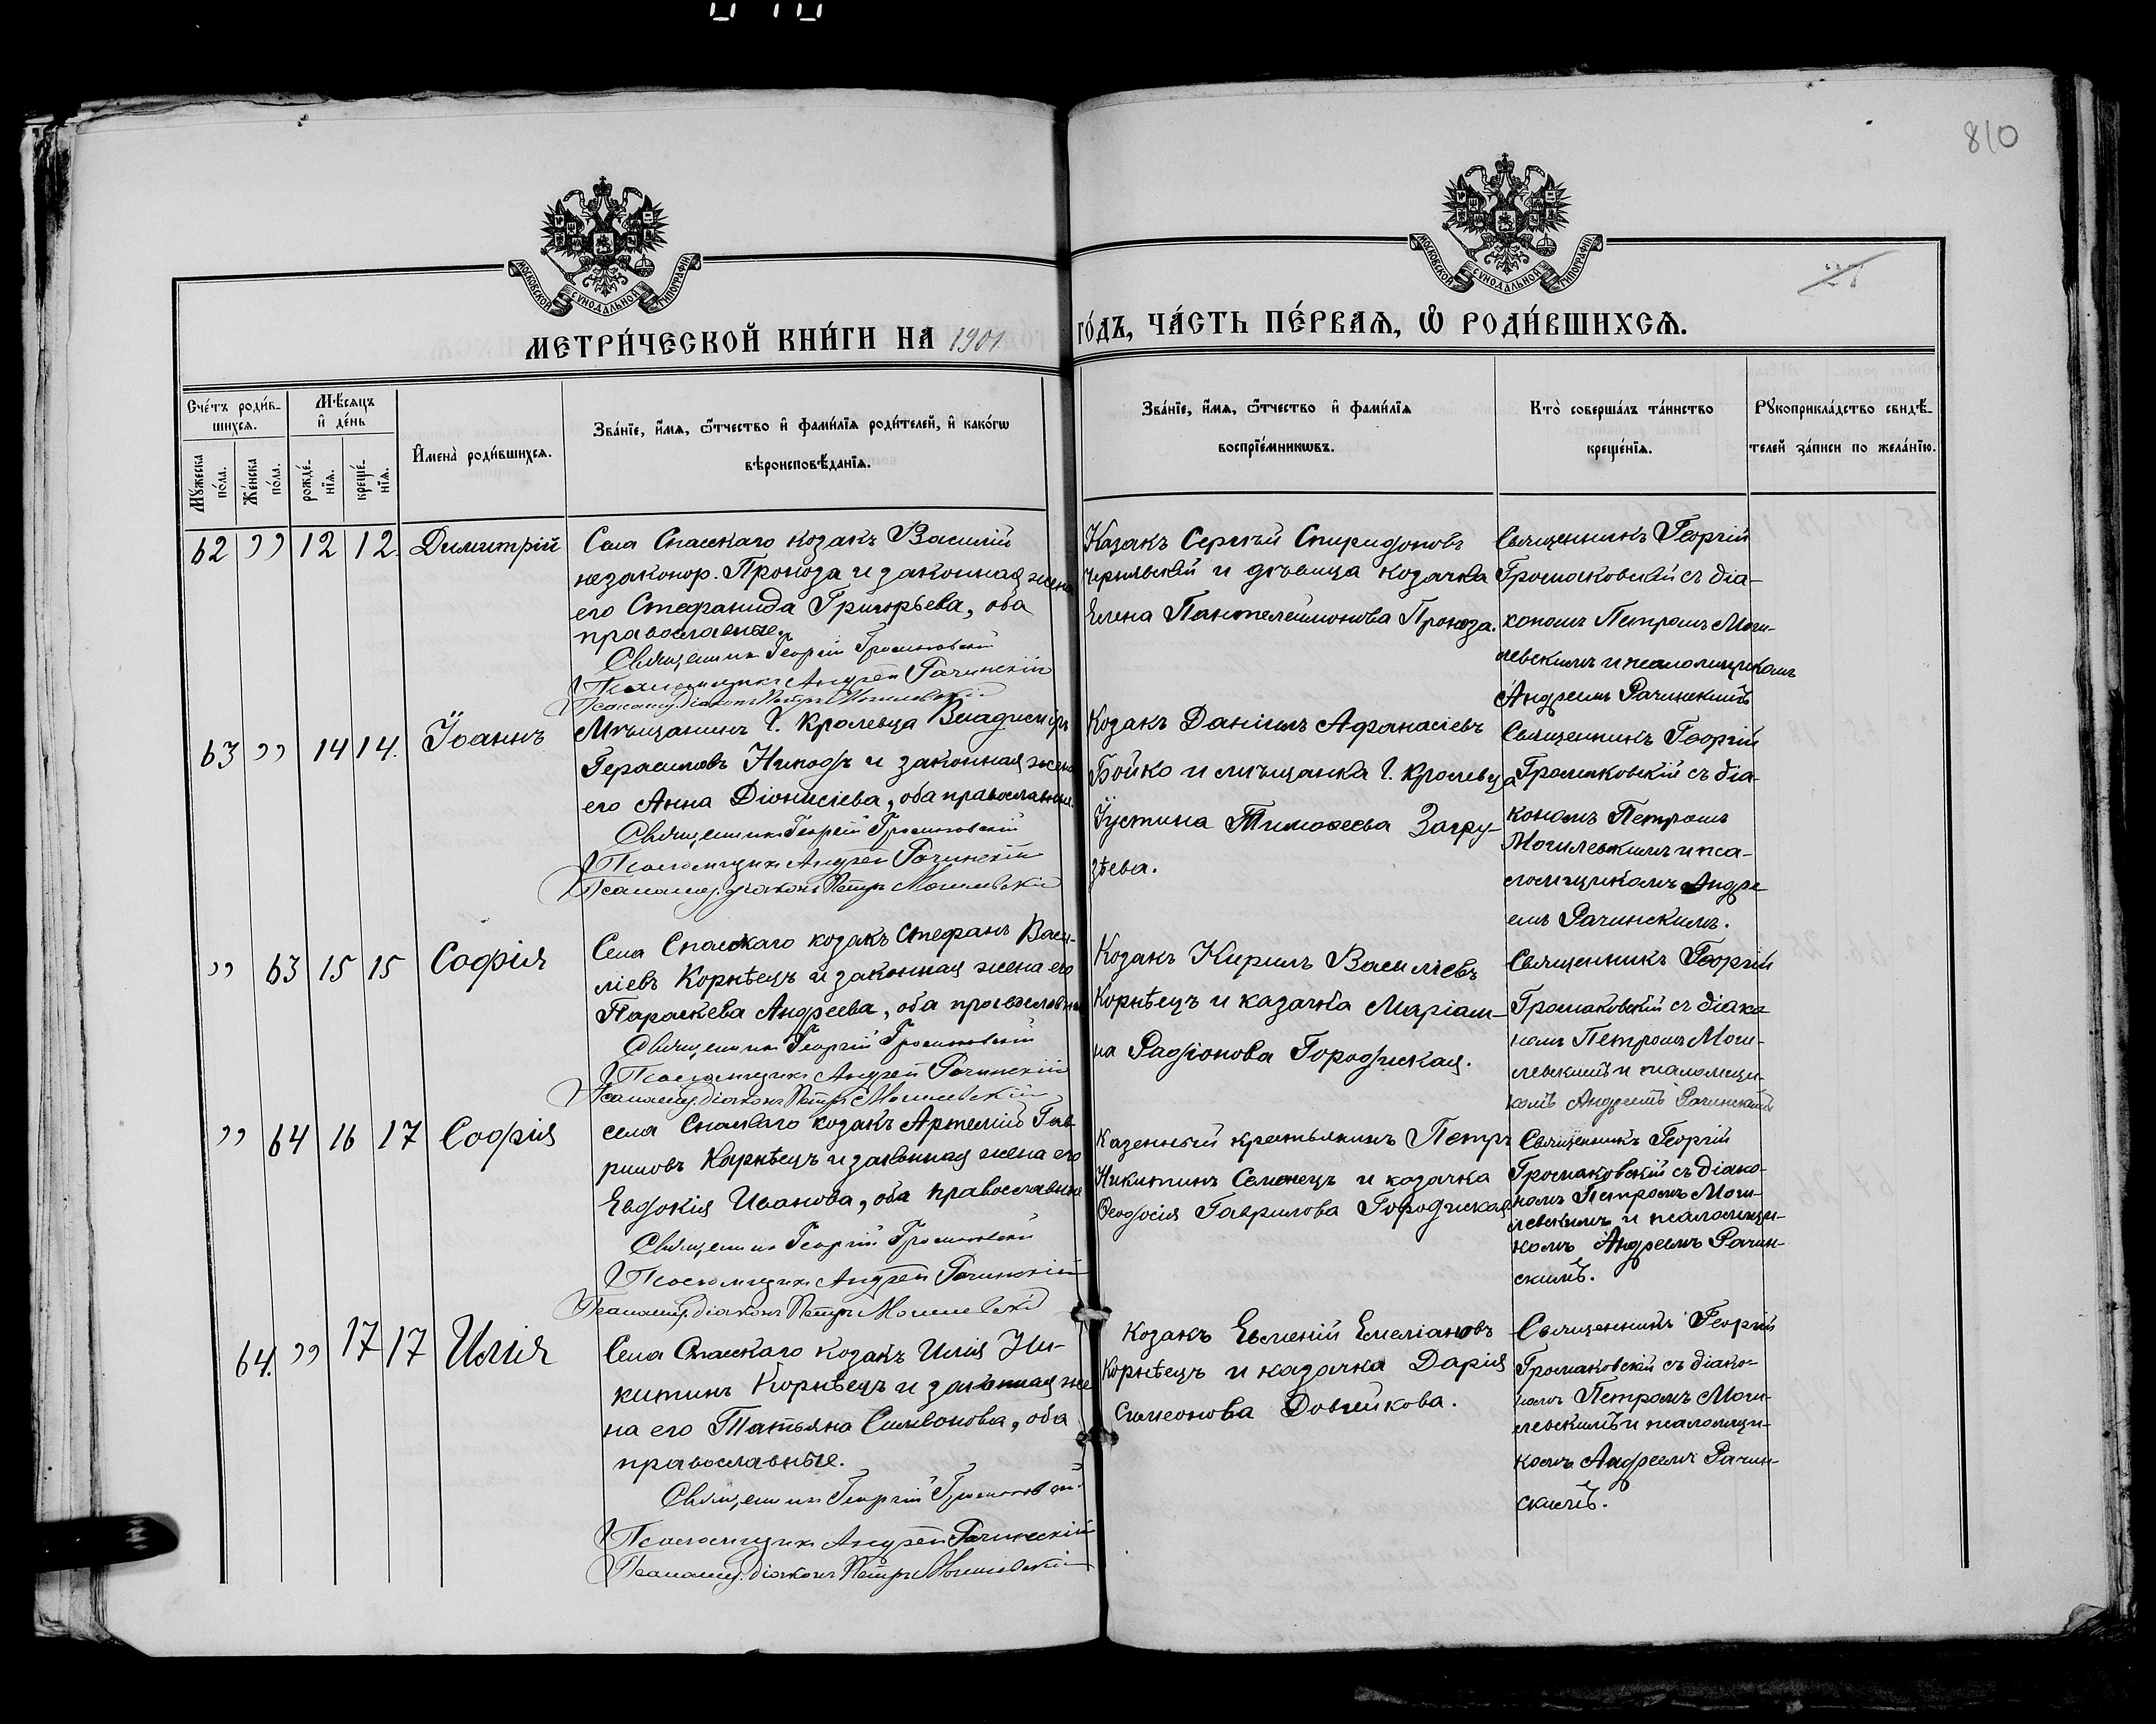 810
МОСКОВСКОЙ СѴНОДАЛЬНОЙ ТИПОГРАФІИ
МОСКОВСКОЙ СѴНОДАЛЬНОЙ ТИПОГРАФІИ
МЕТРИ́ЧЕСКОЙ КНИ́ГИ НА 1901 ГО́ДЪ, ЧА́СТЬ ПЕ́РВАѦ, Ѡ҆ РОДИ́ВШИХСѦ.
Сче́тъ роди́в-
шихсѧ.
Мꙋ́жеска по́ла.
Же́нска по́ла.
Мѣ́сѧцъ и҆ де́нь
рожде́-нїѧ.
креще́-нїѧ.
И҆мена̀ роди́вшихсѧ.
Зва́нїе, и҆́мѧ, ѻ҆́тчество и҆ фами́лїѧ роди́телей, и҆ како́гѡ
вѣроисповѣ́данїѧ.
Зва́нїе, и҆́мѧ, ѻ҆́тчество и҆ фами́лїѧ
воспрїе́мникѡвъ.
Кто̀ соверша́лъ та́инство
креще́нїѧ.
Рꙋкоприкла́дство свидѣ́-
телей за́писи по жела́нїю.
62 " 12 12. Димитрій
Села Спасскаго козакъ Василій
незаконор. Проноза и законная жена
его Стефанида Григорьева, оба
православные.
Священникъ Георгій Громаковскій
Псаломщикъ Андрей Рачинскій
Псаломщ. діаконъ Петръ Могилевскій
Казакъ Сергѣй Спиридоновъ
и дѣвица козачка
Елена Пантелеимонова Проноза.
Священникъ Георгій
Громаковскій съ діа-
кономъ Петромъ Моги-
левскимъ и псаломщикомъ
Андреемъ Рачинскимъ
63 " 14 14. Іоаннъ
Мѣщанинъ г. Кролевца Владиміръ
Герасимовъ и законная жена
его Анна Діонисіева, оба православные.
Священникъ Георгій Громаковскій
Псаломщикъ Андрей Рачинскій
Псаломщ. діаконъ Петръ Могилевскій
Козакъ Даніилъ Афанасіевъ
Бойко и мѣщанка г. Кролевца
Іустина Тимоѳеева Загру-
зѣева.
Священникъ Георгій
Громаковскій съ діа-
кономъ Петромъ
Могилевскимъ и пса-
ломщикомъ Андре-
емъ Рачинскимъ.
" 63 15 15 Софія
Села Спасскаго козакъ Стефанъ Васи-
ліевъ Корнѣецъ и законная жена его
Параскева Андреева, оба православные
Священникъ Георгій Громаковскій
Псаломщикъ Андрей Рачинскій
Псаломщ. діаконъ Петръ Могилевскій
Козакъ Кирилъ Василіевъ
Корнѣецъ и казачка Маріам-
на Радіонова Городиская.
Священникъ Георгій
Громаковскій съ діако-
номъ Петромъ Моги-
левскимъ и псаломщи-
комъ Андреемъ Рачинскимъ
" 64 16 17 Софія
села Спасскаго козакъ Артемій Гав-
риловъ Корнѣецъ и законная жена его
Евдокія Иванова, оба православные
Священникъ Георгій Громаковскій
Псаломщикъ Андрей Рачинскій
Псаломщ. діаконъ Петръ Могилевскій
Казенный крестьянинъ Петръ
Никитинъ Семенецъ и казачка
Ѳеодосія Гаврилова Городиская
Священникъ Георгій
Громаковскій съ діако-
номъ Петромъ Моги-
левскимъ и псаломщи-
комъ Андреемъ Рачин-
скимъ.
64. " 17 17 Илія
Села Спасскаго козакъ Илія Ни-
китинъ Корнѣецъ и законная же-
на его Татьяна Симеонова, оба
православные.
Священникъ Георгій Громаковскій
Псаломщикъ Андрей Рачинскій
Псаломщ. діаконъ Петръ Могилевскій
Козакъ Евменій Емеліановъ
Корнѣецъ и казачка Дарія
Симеонова Довгейкова.
Священникъ Георгій
Громаковскій съ діако-
номъ Петромъ Моги-
левскимъ и псаломщи-
комъ Андреемъ Рачин-
скимъ.